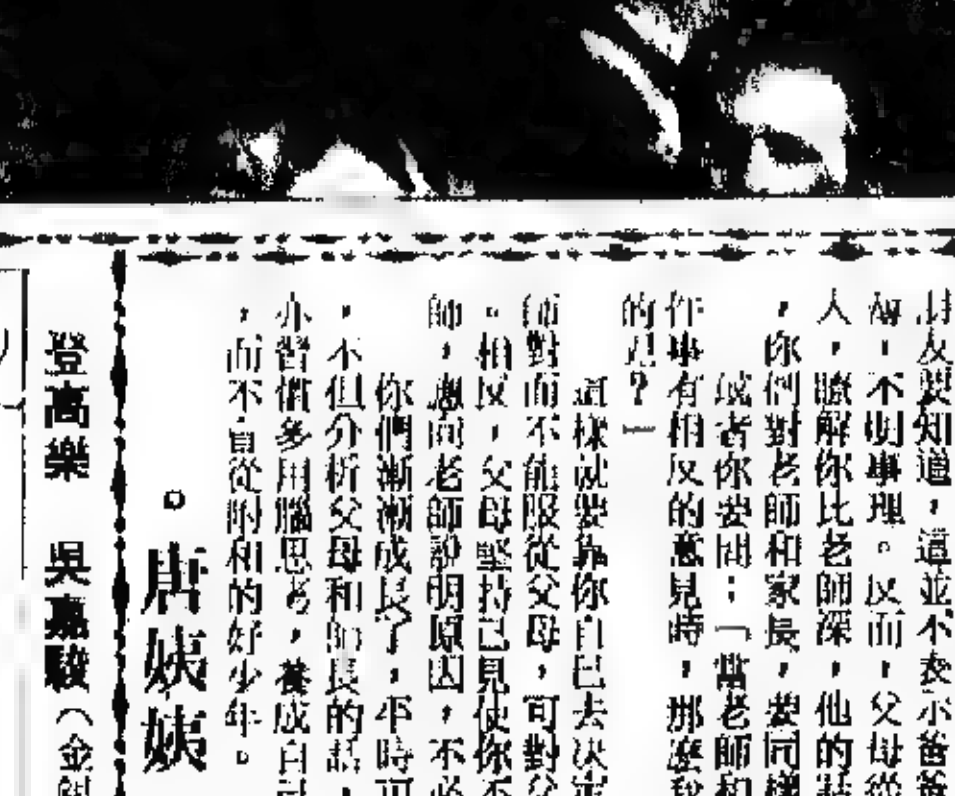 朋友要知道，這並不表示爸爸
，不明事理。反而，父母從
人，瞭解你比老師深，他的
，你們對老師和家長，要同樣
或者你要問：「當老師和
作事有相反的意見時，那麼我
的呢？」
這樣就要靠你自己去決定
師對而不能服從父母，可對父
。相反，父母堅持己見使你不
師，應向老師說明原因，不必
你們漸漸成長了，平時可
，不但分析父母和師長的話，
亦習慣多用腦思考，養成自己
，而不盲從附和的好少年。
。唐姨姨
登高樂　吳嘉駿（金